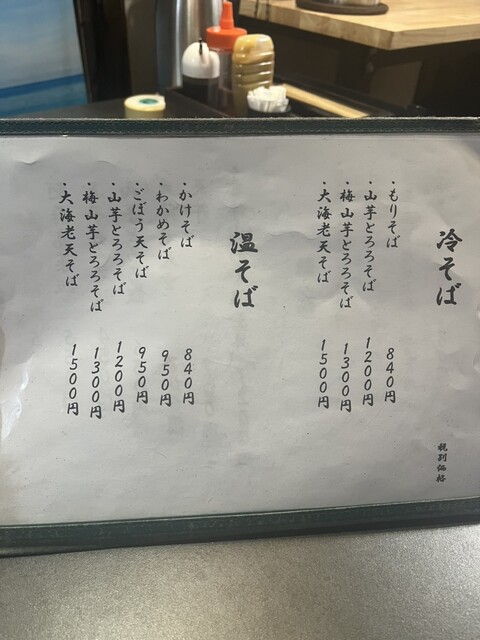 冷そば
・もりそば 840円
・山芋とろろそば 1200円
・梅山芋とろろそば 1300円
・大海老天そば 1500円
税別価格
温そば
・かけそば 840円
・わかめそば 950円
・ごぼう天そば 950円
・山芋とろろそば 1200円
・梅山芋とろろそば 1300円
・大海老天そば 1500円